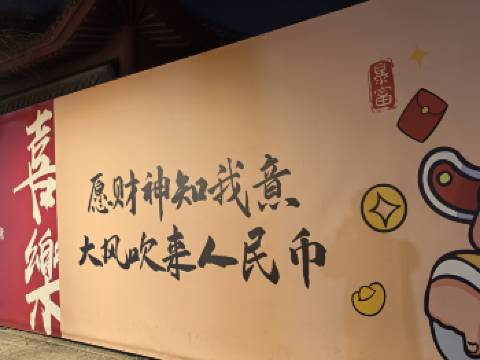 喜樂
愿财神知我意
大风吹来人民币
暴富